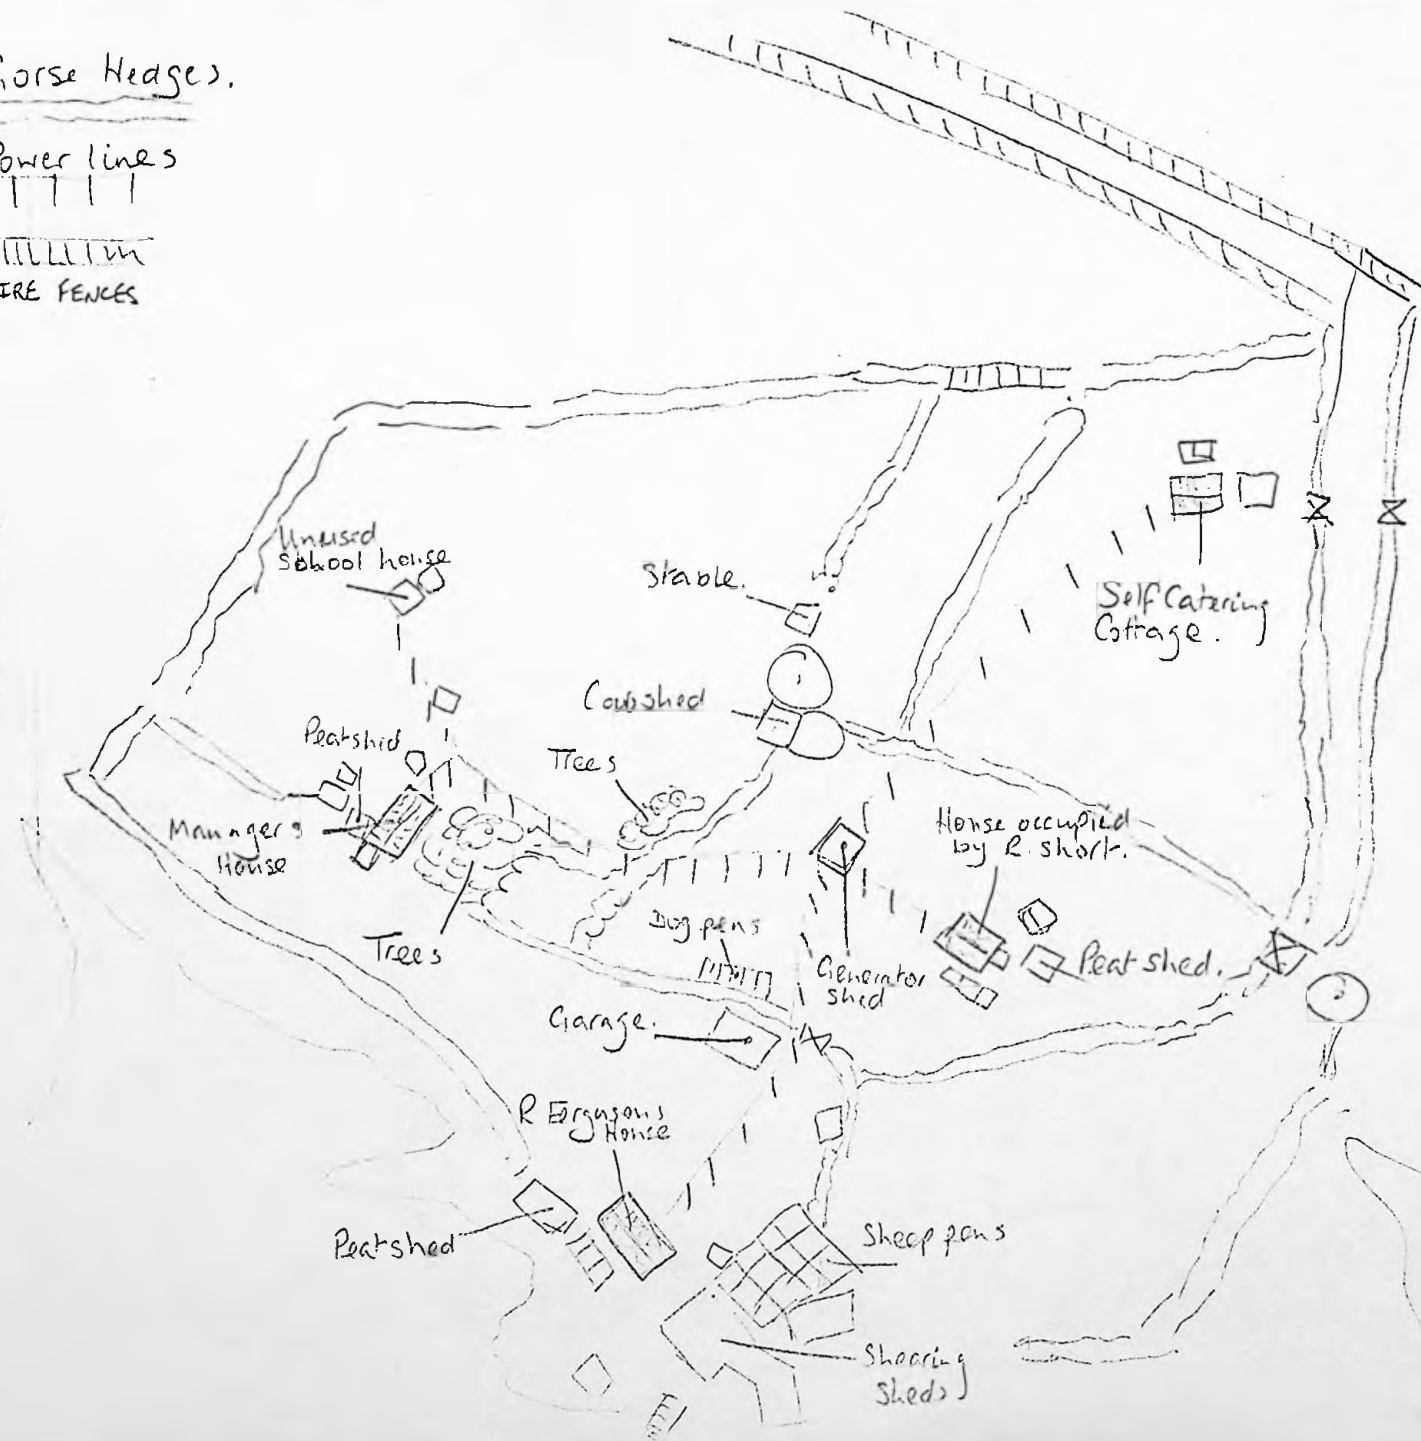 Gorse Hedges.
Power lines
IRE FENCES
Unused
School house
Stable.
Self Catering
Cottage.
Cowshed
Peatshed
Trees
Trees
Managers
House
House occupied
by R. Short.
Trees
Dog pens
Generator
shed
Peat shed.
Garage.
R Fergusons
House
Peatshed
Sheep pens
Shearing
Sheds